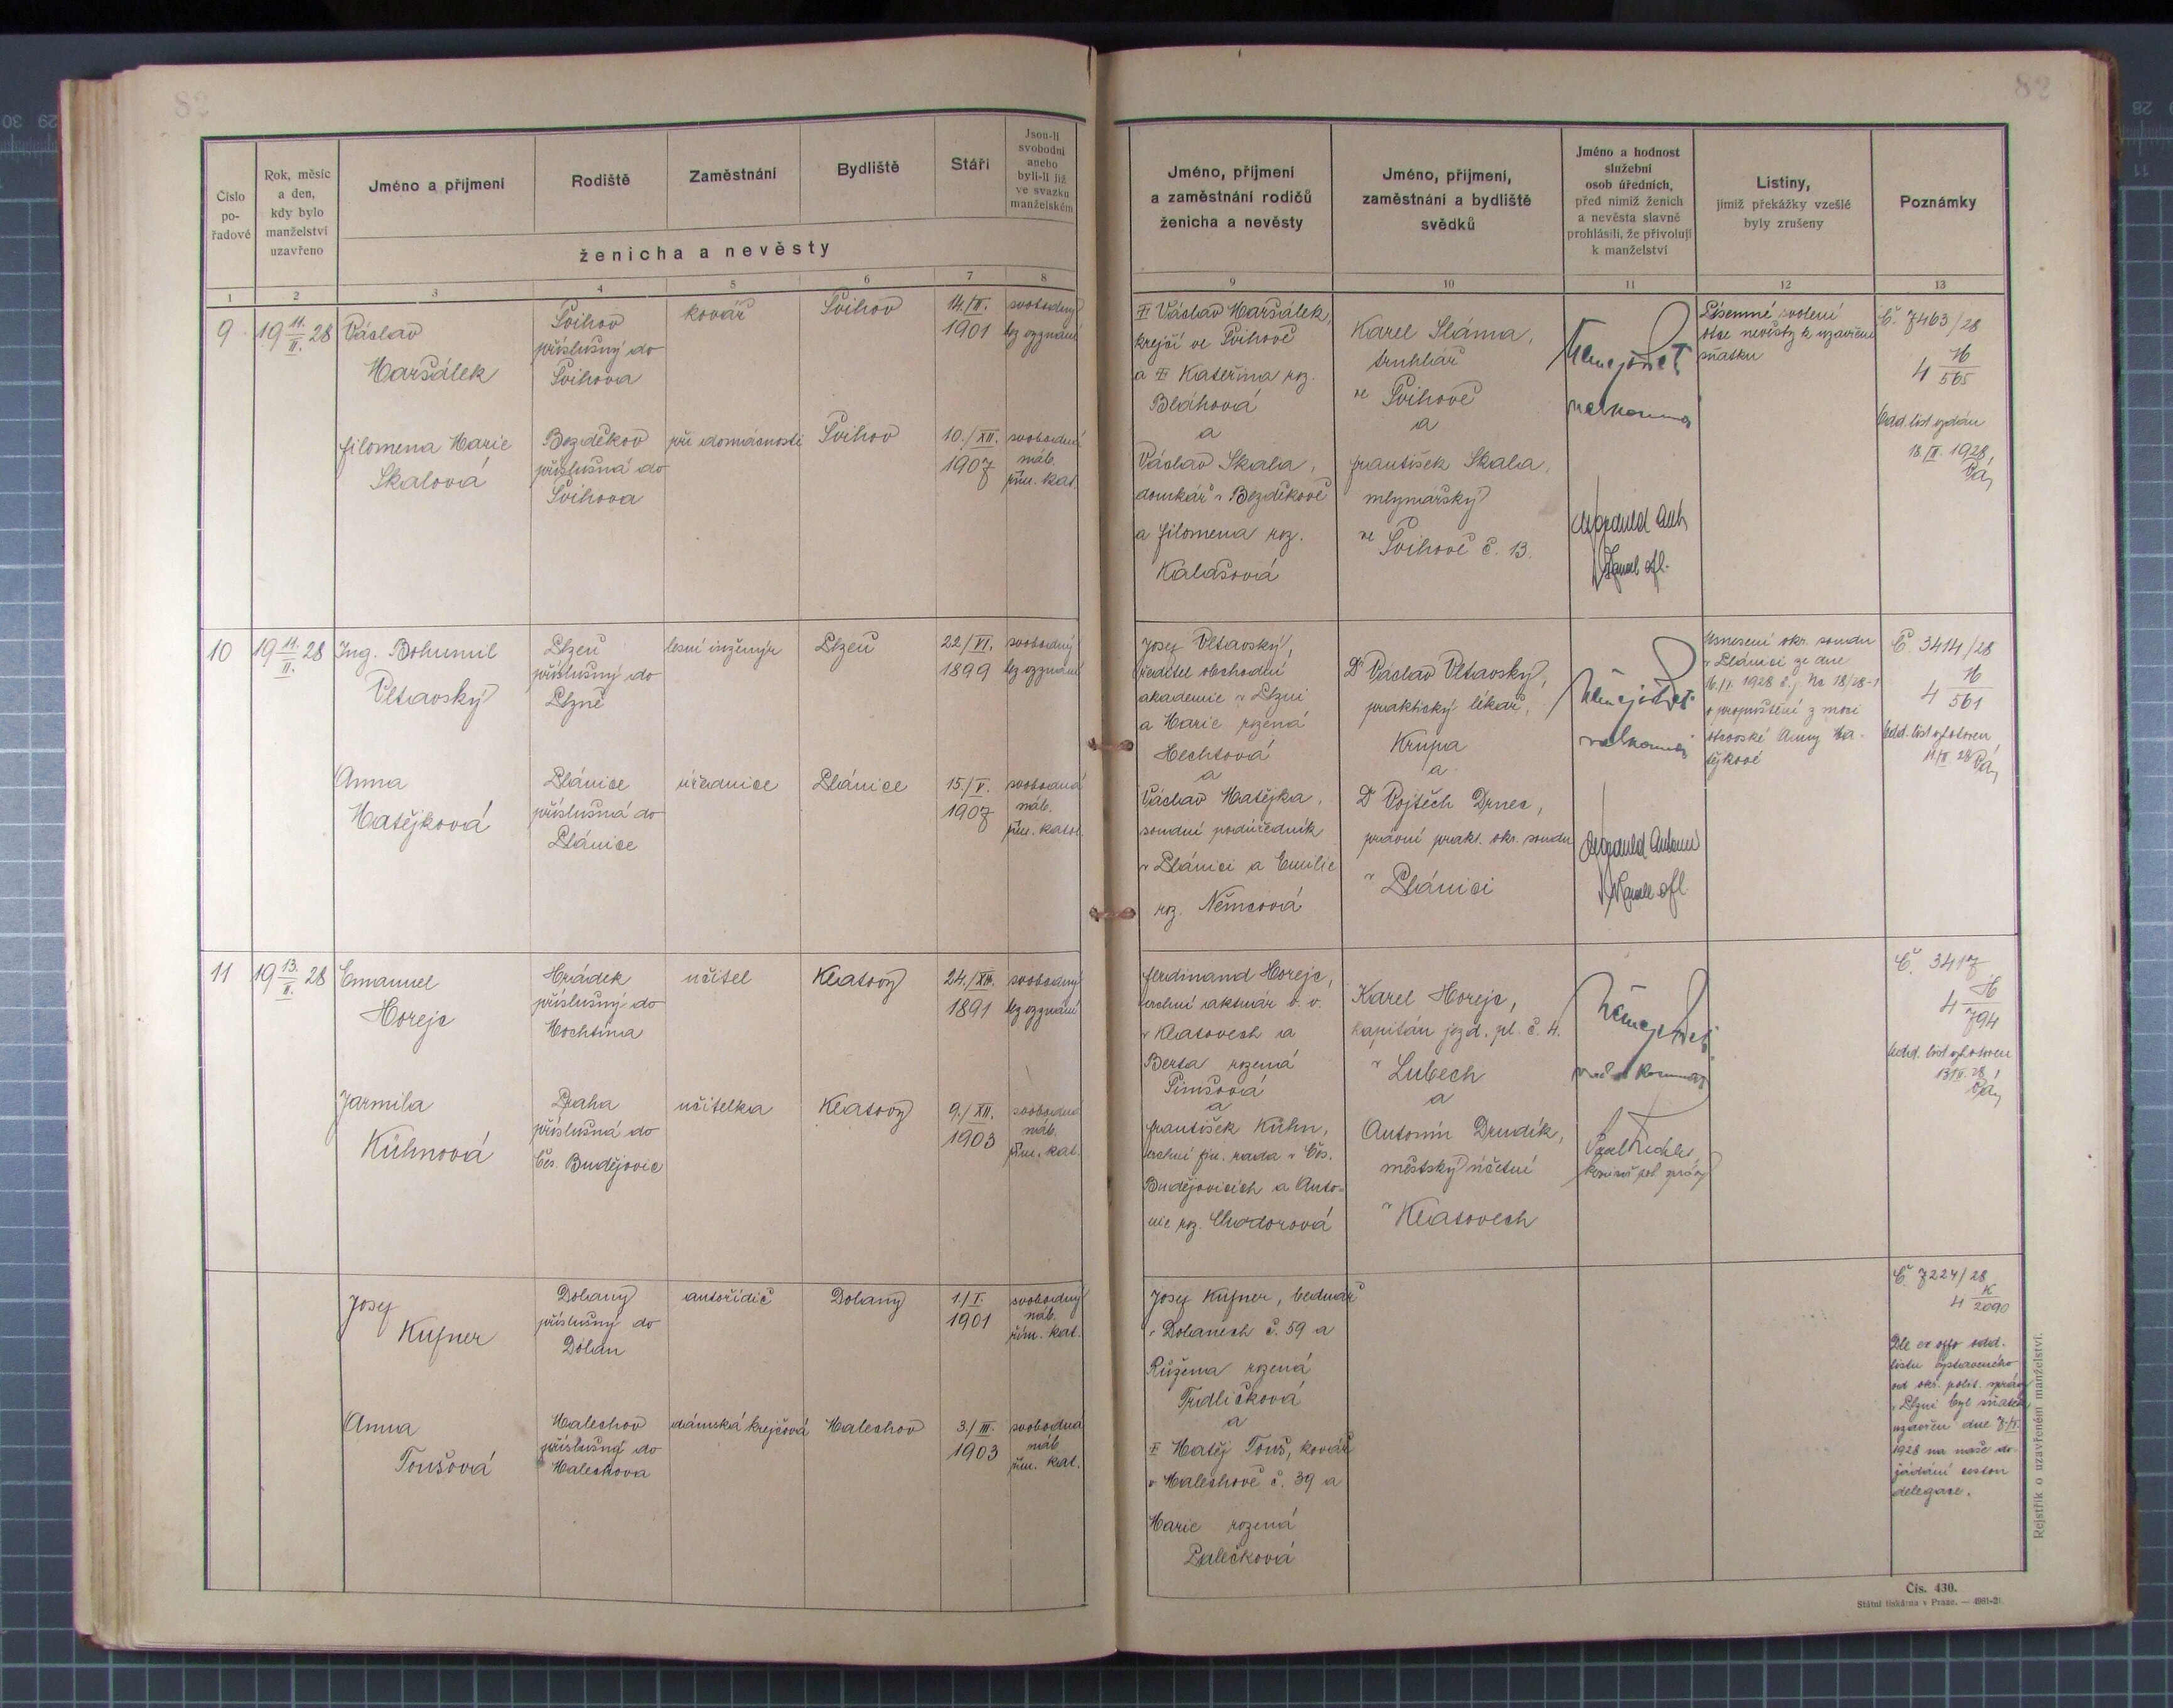 82
82
Číslo
po-
řadové
Rok, měsíc
a den,
kdy bylo
manželství
uzavřeno
Jméno a příjmení
Rodiště
Zaměstnání
Bydliště
Stáří
Jsou-li
svobodni
anebo
byli-li již
ve svazku
manželském
ženicha a nevěsty
Jméno, příjmení
a zaměstnání rodičů
ženicha a nevěsty
Jméno, příjmení,
zaměstnání a bydliště
svědků
Jméno a hodnost
služební
osob úředních,
před nimiž ženich
a nevěsta slavně
prohlásili, že přivolují
k manželství
Listiny,
jimiž překážky vzešlé
byly zrušeny
Poznámky
1 2 3 4 5 6 7 8 9 10 11 12 13
9
19 11./II. 28
Václav
Maršálek
Švihov
příslušný do
Švihova
kovář
Švihov
14./II.
1901
svobodný
bez vyznání
Filomena Marie
Skalová
Bezděkov
příslušná do
Švihova
při domácnosti
Švihov
10./XII.
1907
svobodná
náb.
řím. kat.
‡ Václav Maršálek,
krejčí ve Švihově
a ‡ Kateřina roz.
Bláhová
a
Václav Skala,
domkář v Bezděkově
a Filomena roz.
Kalašová
Karel Sláma,
truhlář
ve Švihově
a
František Skala,
mlynářský
ve Švihově č. 13.
Písemné svolení
otce nevěsty k uzavření
sňatku
Č. 7463/28
4 M/565
Odd. list vydán
18./II. 1928,
10
19 11./II. 28
Ing. Bohumil
Vltavský
Plzeň
příslušný do
Plzně
lesní inženýr
Plzeň
22./VI.
1899
svobodný
bez vyznání
Anna
Matějková
Plánice
příslušná do
Plánice
úřednice
Plánice
15./V.
1907
svobodná
náb.
řím. katol.
Josef Vltavský,
ředitel obchodní
akademie v Plzni
a Marie rozená
Hechtová
a
Václav Matějka,
soudní podúředník
v Plánici a Emilie
roz. Němcová
Dr Václav Vltavský,
praktický lékař,
Krupa
a
Dr Vojtěch Drnec,
právní prakt. okr. soudu
v Plánici
Usnesení okr. soudu
v Plánici ze dne
16./I. 1928 č. j. Nc 18/28-1
o propuštění z moci
otcovské Anny Ma-
tějkové
Č. 3414/28
4 M/561
Odd. list vyhotoven
11/II 28
11
19 13./II. 28
Emanuel
Horejc
Hrádek
příslušný do
Mochtína
učitel
Klatovy
24./XII.
1891
svobodný
bez vyznání
Jarmila
Kühnová
Praha
příslušná do
Čes. Budějovic
učitelka
Klatovy
9./XII.
1903
svobodná
náb.
řím. kat.
Ferdinand Horejc,
vrchní aktuár v. v.
v Klatovech a
Berta rozená
Šimšová
a
František Kühn,
vrchní fin. rada v Čes.
Budějovicích a Anto-
nie roz. Chodorová
Karel Horejc,
kapitán jezd. pl. č. 4.
v Lubech
a
Antonín Drudík,
městský účetní
v Klatovech
Č. 3417
4 H/794
Odd. list vyhotoven
13/II 28
Josef
Kufner
Dolany
příslušný do
Dolan
autořidič
Dolany
1./I.
1901
svobodný
náb.
řím. kat.
Anna
Toušová
Malechov
příslušný do
Malechova
dámská krejčová
Malechov
3./III.
1903
svobodná
náb.
řím. kat.
Josef Kufner, bednář
v Dolanech č. 59 a
Růžena rozená
Trdličková
a
‡ Matěj Touš, kovář
v Malechově č. 39 a
Marie rozená
Palečková
Č. 7224/28
4 K/2090
Dle ex offo odd.
listu vystaveného
od okr. polit. správy
v Plzni byl sňatek
uzavřen dne 7./II.
1928 na naše do-
žádání cestou
delegace.
Rejstřík o uzavřeném manželství.
Čís. 430.
Státní tiskárna v Praze. — 4961-2